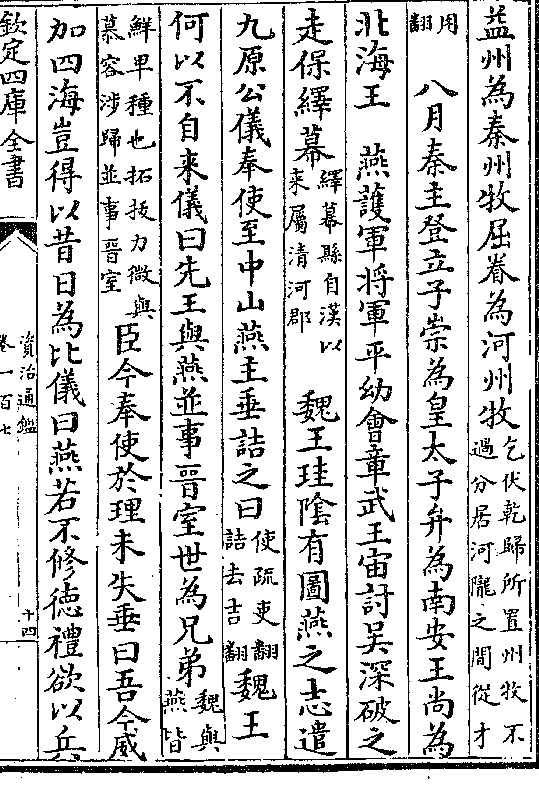 益州為秦州牧屈眷為河州牧乞伏乾歸所置州牧不過分居河隴之間從才
用翻　八月秦主登立子崇為皇太子弁為南安王尚為
北海王　燕護軍將軍平幼會章武王宙討吳深破之
走保繹幕繹幕縣自漢以來屬清河郡　魏王珪陰有圖燕之志遣
九原公儀奉使至中山燕主垂詰之曰使疏吏翻詰去吉翻魏王
何以不自來儀曰先王與燕並事晉室世為兄弟魏與燕皆
鮮卑種也拓拔力微與慕容涉歸並事晉室臣今奉使於理未失垂曰吾今威
加四海豈得以昔日為比儀曰燕若不修德禮欲以兵
欽定四庫全書
資治通鑑
卷一百七
十四